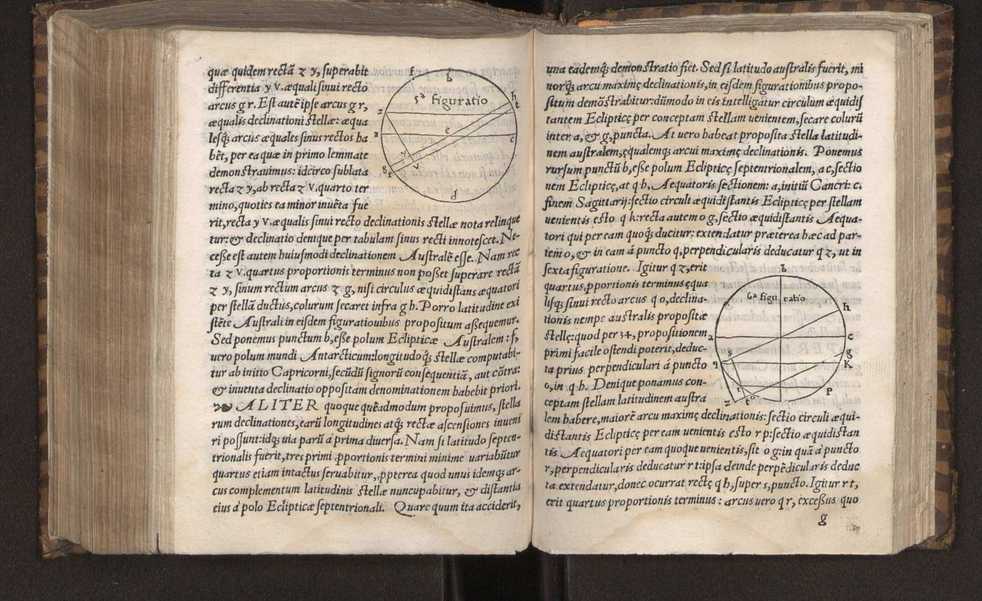 quæ quidem rectã z y, superabit
differentia y v. æqualis sinui recto
arcus g r. Est autē ipse arcus g r,
æqualis declinationi stellæ: æqua
lesq; arcus æquales sinus rectos ha
bēt, per ea quæ in primo lemmate
demonstrauimus: idcirco sublata
recta z y, ab recta z v. quarto ter
mino, quoties ea minor inuēta fue
rit, recta y v. æqualis sinui recto declinationis stellæ nota relinque
tur: & declinatio denique per tabulam sinus recti innotescet. Ne-
cesse est autem huiusmodi declinationem Australē esse. Nam rec
ta z v. quartus proportionis terminus non posset superare rectã
z y, sinum rectum arcus z g, nisi circulus æquidistans æquatori
per stellã ductus, colurum secaret infra g h. Porro latitudine exi
stēte Australi in eisdem figurationibus propositum assequemur.
Sed ponemus punctum b, esse polum Eclipticæ Australem: f,
vero polum mundi Antarcticum: longitudoq; stellæ computabi-
tur ab initio Capricorni, secūdū signorū consequentiã, aut cōtra:
& inuenta declinatio oppositam denominationem habebit priori.
ALITER quoque quēadmodum proposuimus, stella
rum declinationes, earū longitudines atq; rectæ ascensiones inueni
ri possunt: idq; via parū á prima diuersa. Nam si latitudo septen-
trionalis fuerit, tres primi pportionis termini minime variabūtur
quartus etiam intactus seruabitur, ppterea quod vnui idemq; ar-
cus complementum latitudinis stellæ nuncupabitur, & distantia
eius á polo Eclipticæ septentrionali. Quare quum ita acciderit,
5ª figuratio
f
b
h
t
z
a
e
c
y
g
d
vna eademq; demonstratio fiet. Sed si latitudo australis fuerit, mi
norq; arcu maximę declinationis, in eisdem figurationibus propo-
situm demōstrabitur: dūmodo in eis intelligatur circulum æquidis
tantem Eclipticę per conceptam stellam venientem, secare colurū
inter a, & g, puncta. At vero habeat proposita stella latitudi-
nem australem, ęqualemq; arcui maximę declinationis. Ponemus
rursum punctū b, esse polum Eclipticę septentrionalem, a c, sectio
nem Eclipticę, at q h, Aequatoris sectionem: a, initiū Cancri: c,
finem Sagittarij: sectio circuli æquidistantis Eclipticę per stellam
venientis esto q k: recta autem o g, sectio æquidistantis Aequa-
tori qui per eam quoq; ducitur: extendatur præterea hæc ad par-
tem o, & in eam á puncto q, perpendicularis deducatur q z, vt in
sexta figuratione. Igitur q z, erit
quartus pportionis terminus ęqua
lisq; sinui recto arcus q o, declina-
tionis nempe australis propositæ
stellę: quod per 34, propositionem
primi facile ostendi poterit, deduc-
ta prius perpendiculari á puncto
o, in q h. Denique ponamus con-
ceptam stellam latitudinem austra
lem habere, maiorē arcu maximę declinationis: sectio circuli æqui-
distantis Eclipticę per eam venientis esto r p: sectio æquidistan
tis Aequatori per eam quoque venientis, sit o g: in quã á puncto
r, perpendicularis deducatur r t: ipsa deinde perpēdicularis deduc
ta extendatur, donec occurrat rectę q h, super s, puncto. Igitur r t,
erit quartus proportionis terminus: arcus vero q r, excessus quo
6ª figuratio
b
h
a
c
g
K
q
p
z
o
g